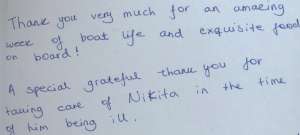 Thank you very much for an amazing
week of boat life and exquisite food
on board!
A special grateful thank you for
taking care of Nikita in the time
of him being ill.